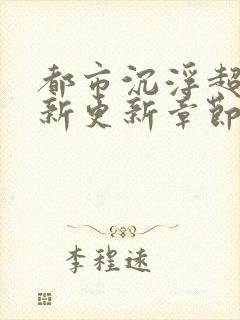 都市沉浮超
新更新章節
李程远